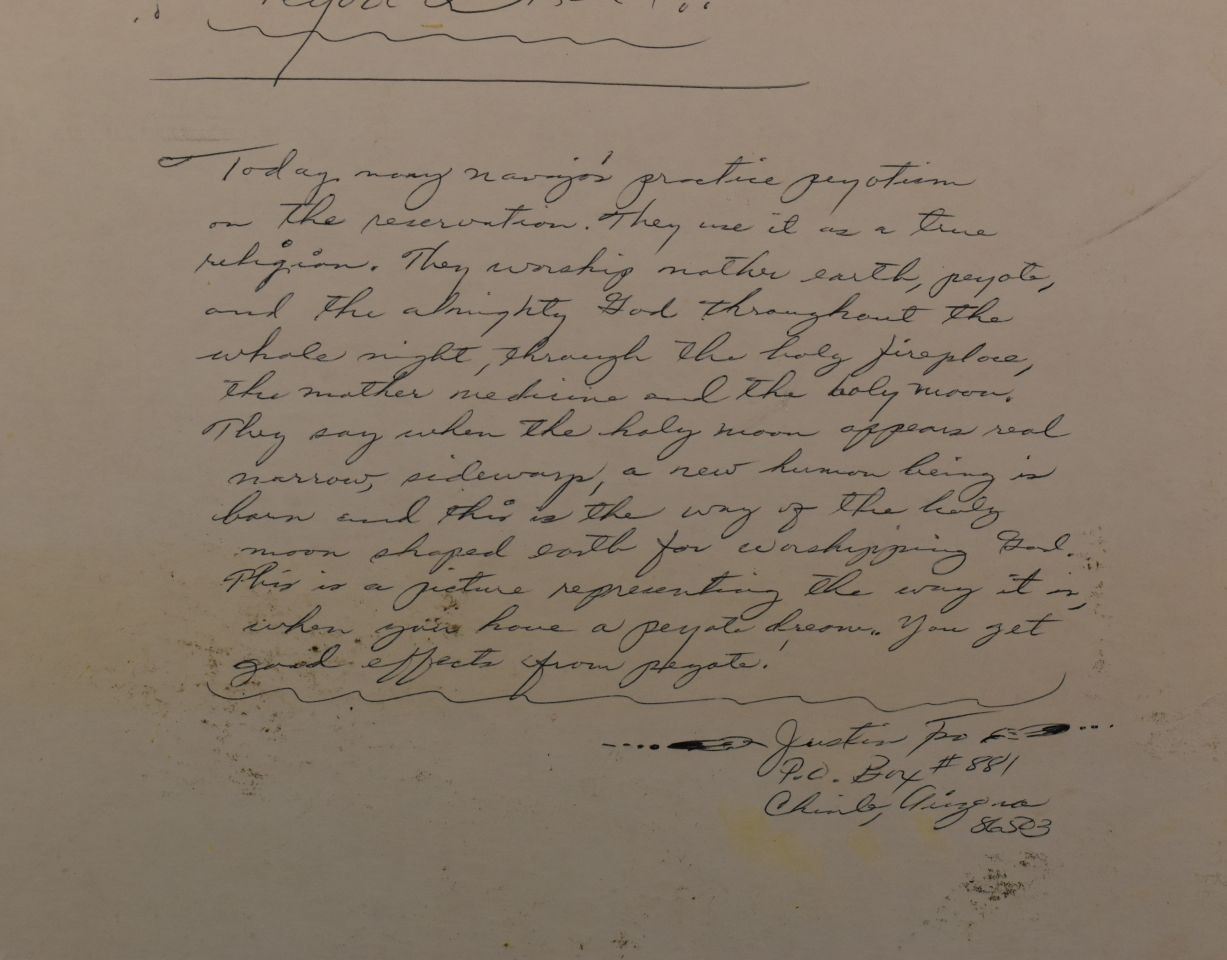 Today many navajo's practice peyotism
on the reservation. They use it as a true
religion. They worship mother earth, peyote,
and the almighty God throughout the
whole night, through the holy fireplace,
the mother medicine and the holy moon.
They say when the holy moon appears real
narrow, sideways, a new human being is
born and this is the way of the holy
moon shaped earth for worshipping God.
This is a picture representing the way it is,
when you have a peyote dream. You get
good effects from peyote!
Justin Tso
P.O. Box #881
Chinle, Arizona
86503